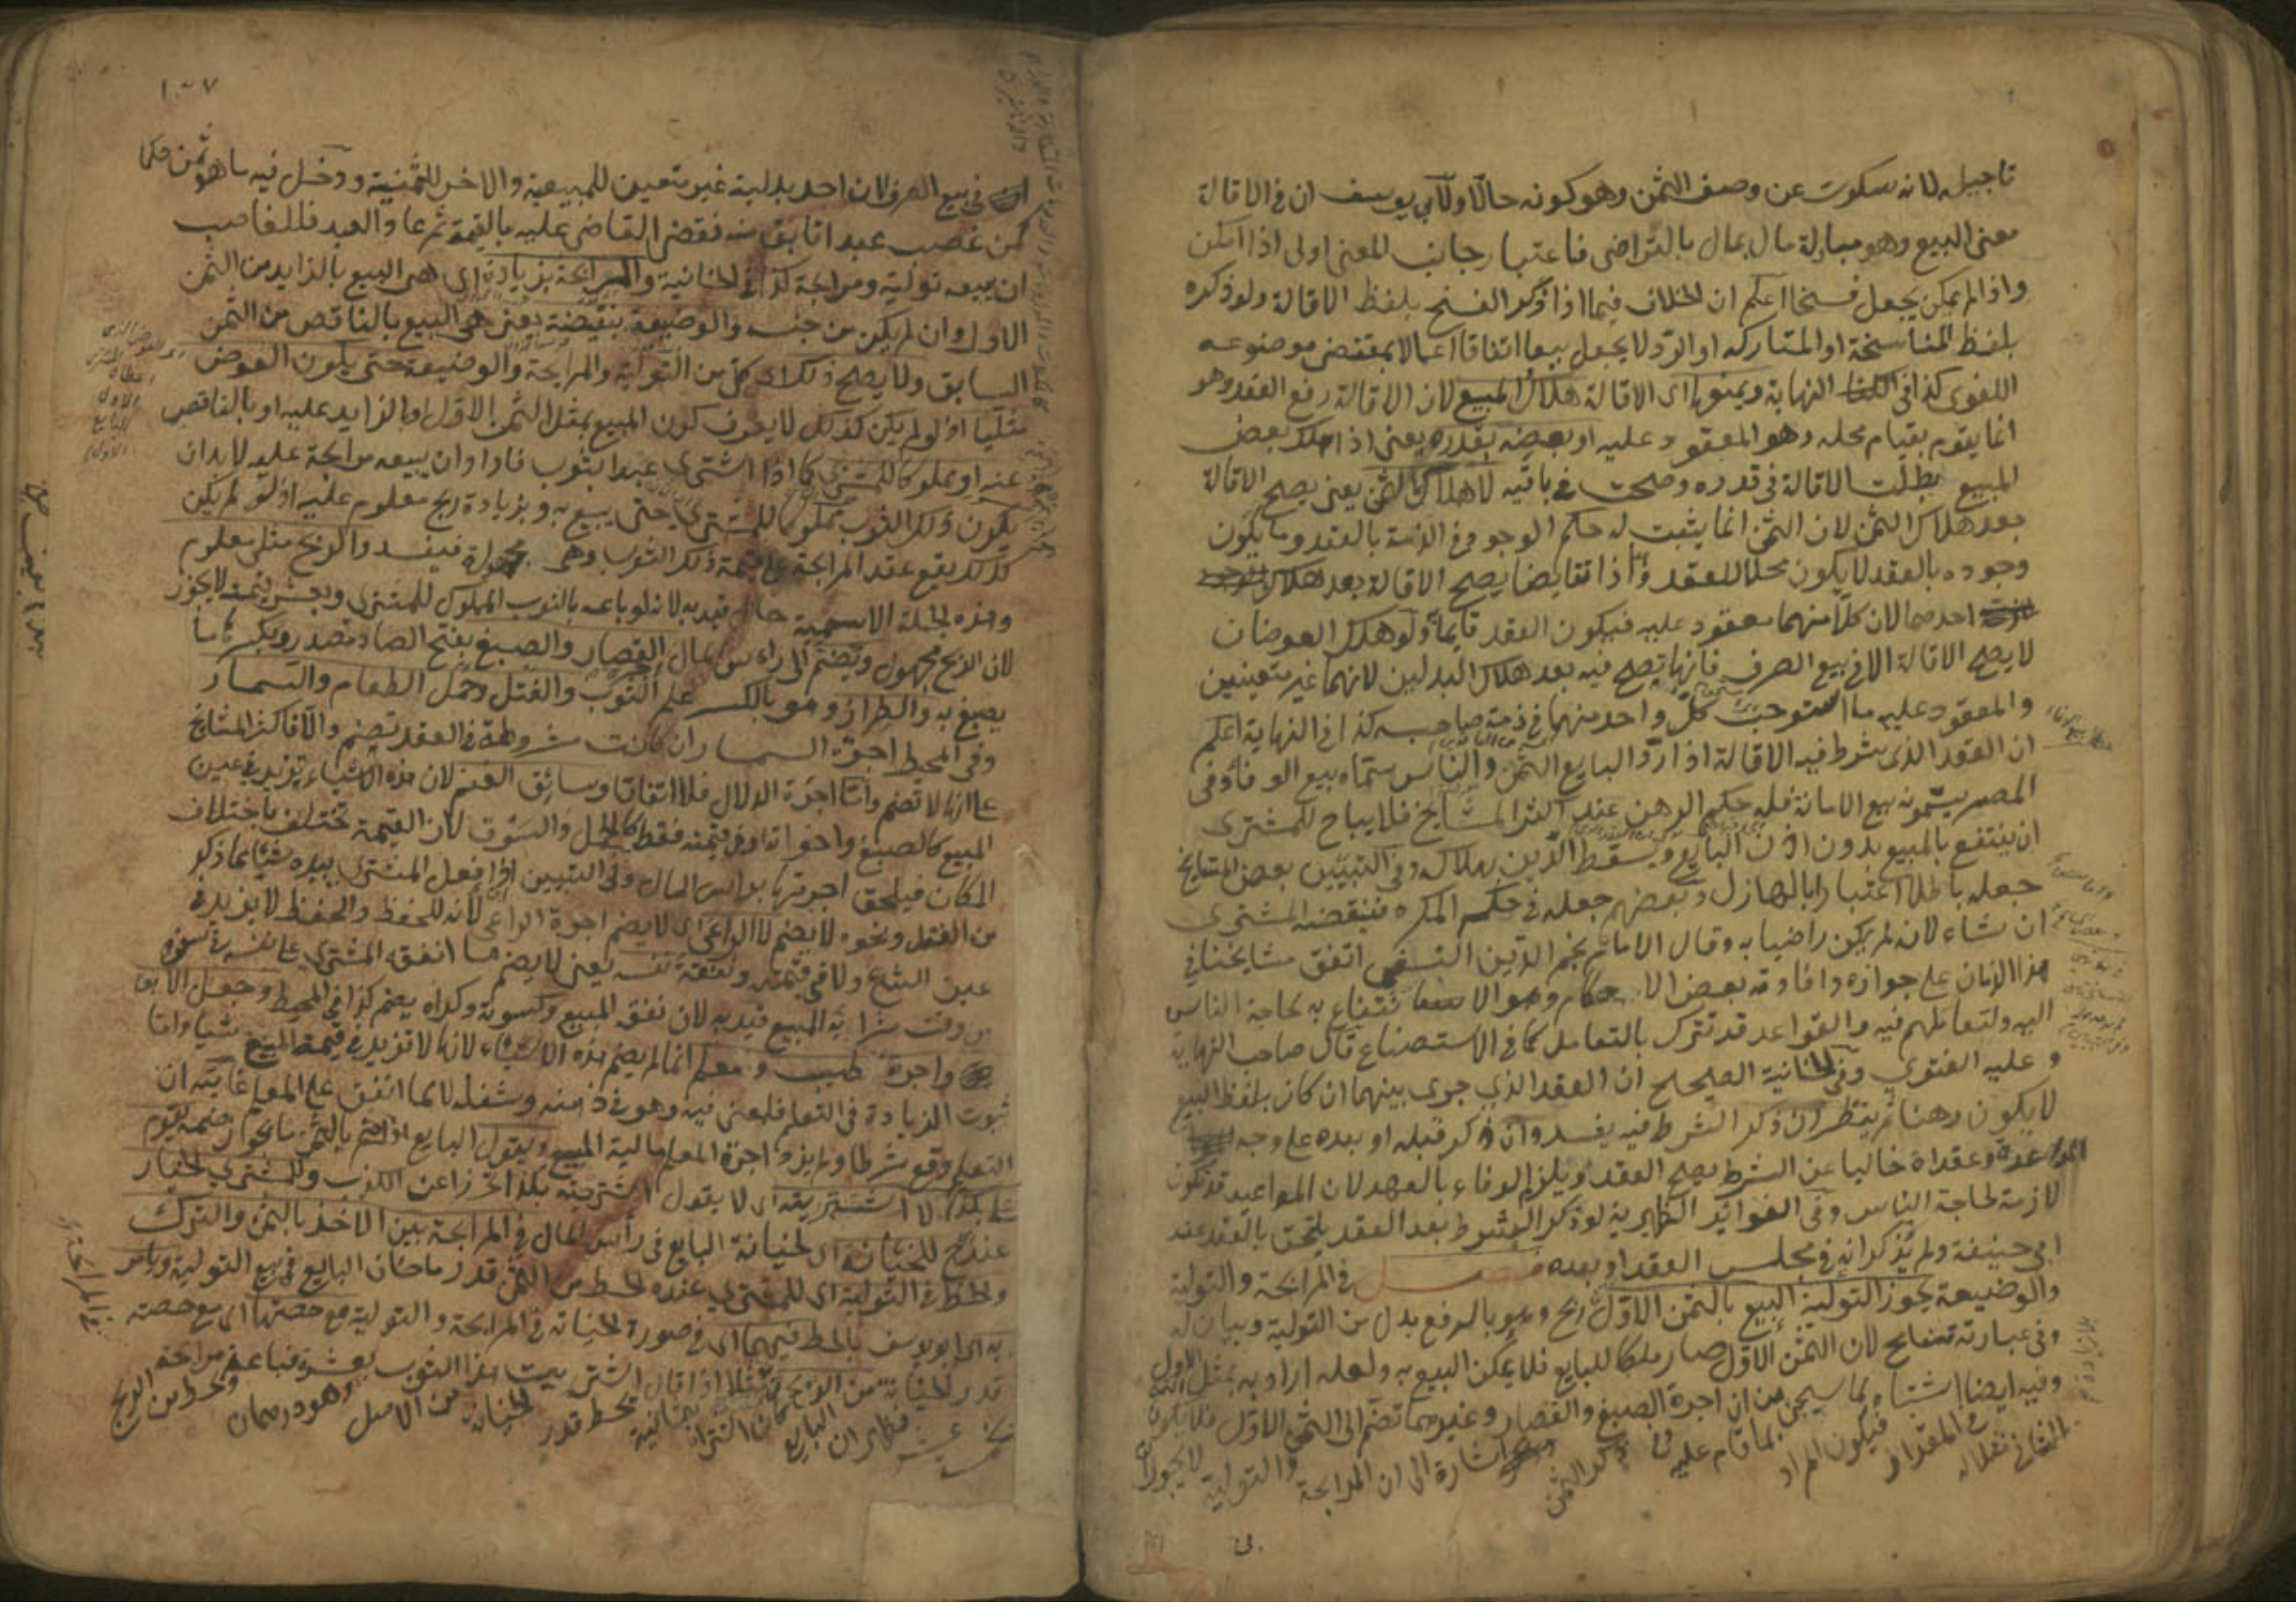 تاجيله لانه سكوت عن وصف الثمن وهو كونه حالا ولابي يوسف ان في الاقالة
معنى البيع وهو مبادلة مال بمال بالتراضي فاعتبار جانب المعنى اولى اذا امكن
واذا لم يمكن يجعل فسخا اعلم ان الخلاف فيما اذا ذكر الفسخ بلفظ الاقالة ولو ذكره
بلفظ المناسخة او المتاركة او الرد لا يجعل بيعا اتفاقا اعمالا بمقتضى موضوعه
اللغوي كذا في النهاية ويمنعها اي الاقالة هلاك المبيع لان الاقالة رفع العقد وهو
انما يقوم بقيام محله وهو المعقود عليه او بعضه بقدره يعني اذا هلك بعض
المبيع بطلت الاقالة في قدره وصحت في باقيه لا هلاك الثمن يعني يصح الاقالة
بعد هلاك الثمن لان الثمن انما يثبت له حكم الوجود في الذمة بالعقد وما يكون
وجوده بالعقد لا يكون محلا للعقد واذا تقايضا يصح الاقالة بعد هلاك
احدهما لان كلا منهما معقود عليه فيكون العقد قايما ولو هلك العوضان
لا يصح الاقالة الا في بيع الصرف فانها تصح فيه بعد هلاك البدلين لانهما غير متعينين
والمعقود عليه ما استوجب كل واحد منهما في ذمة صاحبه كذا في النهاية اعلم
ان العقد الذي شرط فيه الاقالة اذا رد البايع الثمن والناس سماه بيع الوفاء وفي
المصر يسمونه بيع الامانة فله حكم الرهن عند اكثر المشايخ فلا يباح للمشتري
ان ينتفع بالمبيع بدون اذن البايع ويسقط الدين بهلاكه وفي التبيين بعض المشايخ
جعله باطلا اعتبارا بالهازل وبعضهم جعله في حكم المكره فينقضه المشتري
ان شاء لانه لم يكن راضيا به وقال الامام نجم الدين النسفي اتفق مشايخنا في
هذا الزمان على جوازه وافادته بعض الاحكام وهو الانتفاع به لحاجة الناس
اليه ولتعاملهم فيه والقواعد قد تترك بالتعامل كما في الاستصناع قال صاحب النهاية
وعليه الفتوى وفي الخانية الصحيح ان العقد الذي جرى بينهما ان كان بلفظ البيع
لا يكون رهنا ثم ينظر ان ذكر الشرط فيه يفسد وان ذكر قبله او بعده على وجه
المواعدة وعقداه خاليا عن الشرط يصح العقد ويلزم الوفاء بالعهد لان المواعيد قد تكون
لازمة لحاجة الناس وفي الفوائد الظهيرية لو ذكر الشرط بعد العقد يلتحق بالعقد عند
ابي حنيفة ولم يذكر انه في مجلس العقد او بعده فصل في المرابحة والتولية
والوضيعة يجوز التولية البيع بالثمن الاول ربح وهو بالرفع بدل من التولية وبيان له
وفي عبارته تسامح لان الثمن الاول صار ملكا للبايع فلا يمكن البيع به ولعله اراد به بمثل الاول
وفيه ايضا اشتباه لما سيجي من ان اجرة الصبغ والقصار وغيرهما تضم الى الثمن الاول فلا يكون
الثاني مثلا له في المقدار فيكون المراد بما قام عليه وفي ذكر الثمن اشارة الى ان المرابحة والتولية لا يجوزان
١٠٧
في بيع الصرف لان احد بدليه غير متعين للمبيعية والاخر للثمنية ودخل فيه ما هو ثمن حكما
كمن غصب عبدا فابق منه فقضى القاضي عليه بالقيمة ثم عاد العبد فللغاصب
ان يبيعه تولية ومرابحة كذا في الخانية والمرابحة بزيادة اي هي البيع بالزايد من الثمن
الاول وان لم يكن من جنسه والوضيعة بنقيضة يعني هي البيع بالناقص من الثمن
السابق ولا يصح ذلك اي كل من التولية والمرابحة والوضيعة حتى يكون العوض
مثليا اذ لو لم يكن كذلك لا يعرف كون المبيع بمثل الثمن الاول او بالزايد عليه او بالناقص
عنه او مملوكا للمشتري كما اذا اشترى عبدا بثوب فاراد ان يبيعه مرابحة عليه لا بد ان
يكون ذلك الثوب مملوكا للمشتري حتى يبيع به وبزيادة ربح معلوم عليه اذ لو لم يكن
كذلك يقع عقد المرابحة على قيمة ذلك الثوب وهي مجهولة فيفسد والربح مثلي معلوم
وهذه الجملة الاسمية حال قيد به لانه لو باعه بالثوب المملوك للمشتري وبعشر قيمته لا يجوز
لان الربح مجهول ويضم الى راس المال القصار والصبغ بفتح الصاد مصدر وبكسرها ما
يصبغ به والطراز وهو بالكسر علم الثوب والفتل وحمل الطعام والسمسار
وفي المحيط اجرة السمسار ان كانت مشروطة في العقد تضم والا فاكثر المشايخ
على انها لا تضم واما اجرة الدلال فلا اتفاقا وسائق الغنم لان هذه الاشياء تزيد في عين
المبيع كالصبغ واخواته او في قيمته فقط كالحمل والسوق لان القيمة تختلف باختلاف
المكان فيلحق اجرتها براس المال وفي التبيين اذا فعل المشتري بيده شيئا مما ذكر
من الفتل ونحوه لا يضم لا الراعي اي لا يضم اجرة الراعي لانه للحفظ والحفظ لا يزيد في
عين الشئ ولا في قيمته ونفقة نفسه يعني لا يضم ما انفق المشتري على نفسه في سفره
وقت شرائه المبيع قيد به لان نفق المبيع وكسوته وكراه يضم كذا في المحيط وجعل الابق
واجرة طبيب ومعلم انما لم يضم هذه الاشياء لانها لا تزيد في قيمة المبيع شيئا واما
ثبوت الزيادة في التعلم فلمعنى فيه وهو في ذهنه وشغله لا بما انفق على المعلم غايته ان
التعليم وقع شرطا ولم يزد اجرة المعلم مالية المبيع ويقول البايع اذا ضم بالثمن ما يجوز ضمه يقوم
علي بكذا لا اشتريته اي لا يقول اشتريته بكذا تحرزا عن الكذب وللمشتري الخيار
عند ح للخيانة اي لخيانة البايع في رأس المال في المرابحة بين الاخذ بالثمن والترك
والحط في التولية اي للمشتري عنده الحط من الثمن قدر ما خان البايع في بيع التولية ويامر
به اي ابو يوسف بالحط فيهما اي في صورة الخيانة في المرابحة والتولية مع حصتها اي مع حصة
قدر الخيانة من الربح مثلا اذا قال اشتريت هذا الثوب بعشرة فباعه مرابحة
بخمسة عشر فظهر ان البايع كان اشتراه بثمانية يحط قدر الخيانة من الاصل وهو درهمان ويحط من الربح